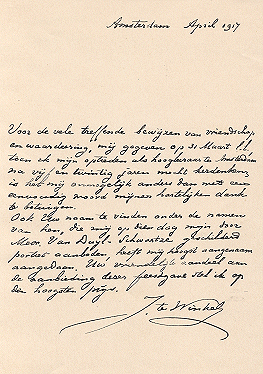 Amsterdam April 1917
Voor de vele treffende bewijzen van vriendschap
en waardeering, mij gegeven op 31 Maart l.l.
toen ik mijn optreden als hoogleeraar te Amsterdam
na vijf en twintig jaren mocht herdenken,
is het mij onmogelijk anders dan met een
eenvoudig woord mijnen hartelijken dank
te betuigen.
Ook Uw naam te vinden onder de namen
van hen, die mij op dien dag mijn door
Mevr. Van Duyl-Schwartze geschilderd
portret aanboden, heeft mij hoogst aangenaam
aangedaan. Uw vriendelijk aandeel aan
de aanbieding dezer feestgave stel ik op
den hoogsten prijs.
J. te Winkel